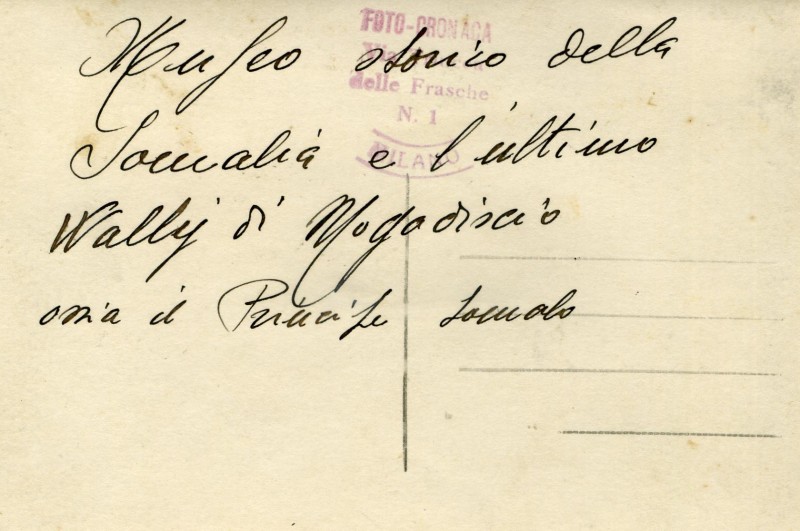 FOTO-CRONACA
delle Frasche
N. 1
MILANO
Museo storico della
Somalia e l'ultimo
Wally di Mogadiscio
ossia il Principe Somalo